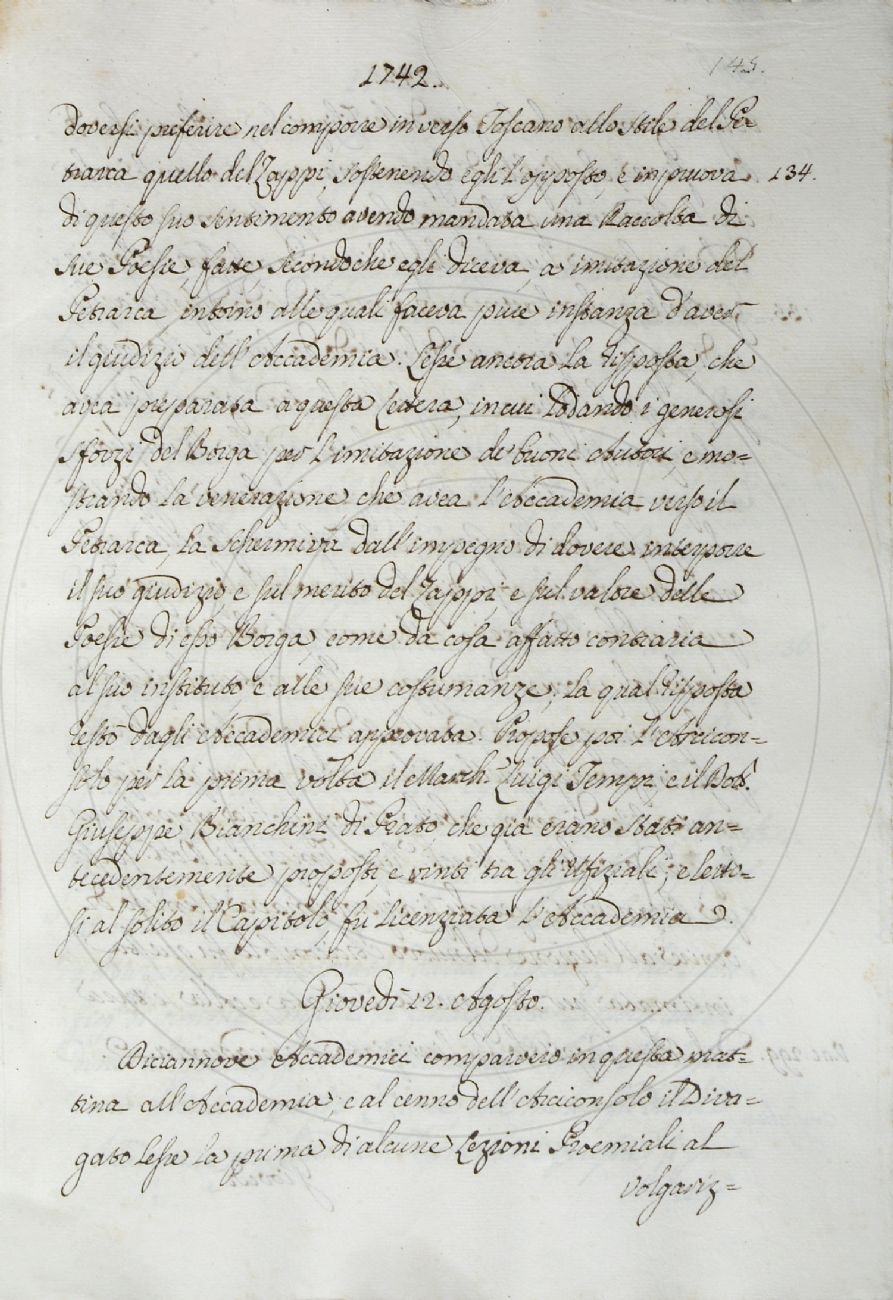 1742.
145.
doversi preferire nel comporre in verso Toscano allo stile del Pe-
trarca quello del Zappi, sostenendo egli l'opposto, e in pruova 134.
di questo suo sentimento avendo mandata una Raccolta di
sue Poesie, fatte, secondoche egli diceva, a imitazione del
Petrarca intorno alle quali faceva pure instanza d'aver
il giudizio dell'Accademia. Lesse ancora la risposta, che
avea preparata a questa lettera, in cui lodando i generosi
sforzi del Borga per l'imitazione de' buoni Autori, e mo=
strando la venerazione, che avea l'Accademia verso il
Petrarca, la schermiva dall'impegno di dovere interporre
il suo giudizio, e sul merito del Zappi, e sul valore delle
Poesie di esso Borga, come da cosa affatto contraria
al suo instituto e alle sue costumanze; la qual risposta
restò dagli Accademici approvata. Propose poi l'Arcicon=
solo per la prima volta il March. Luigi Tempi, e il Dott.
Giuseppe Bianchini di Prato, che già erano stati an=
tecedentemente proposti, e vinti tra gli Ufiziali; e letto=
si al solito il Capitolo, fu licenziata l'Accademia.
Giovedì 12. Agosto.
Diciannove Accademici comparvero in questa mat=
tina all'Accademia, e al cenno dell'Arciconsolo il Diva=
gato lesse la prima di alcune Lezioni Proemiali al
volgariz=